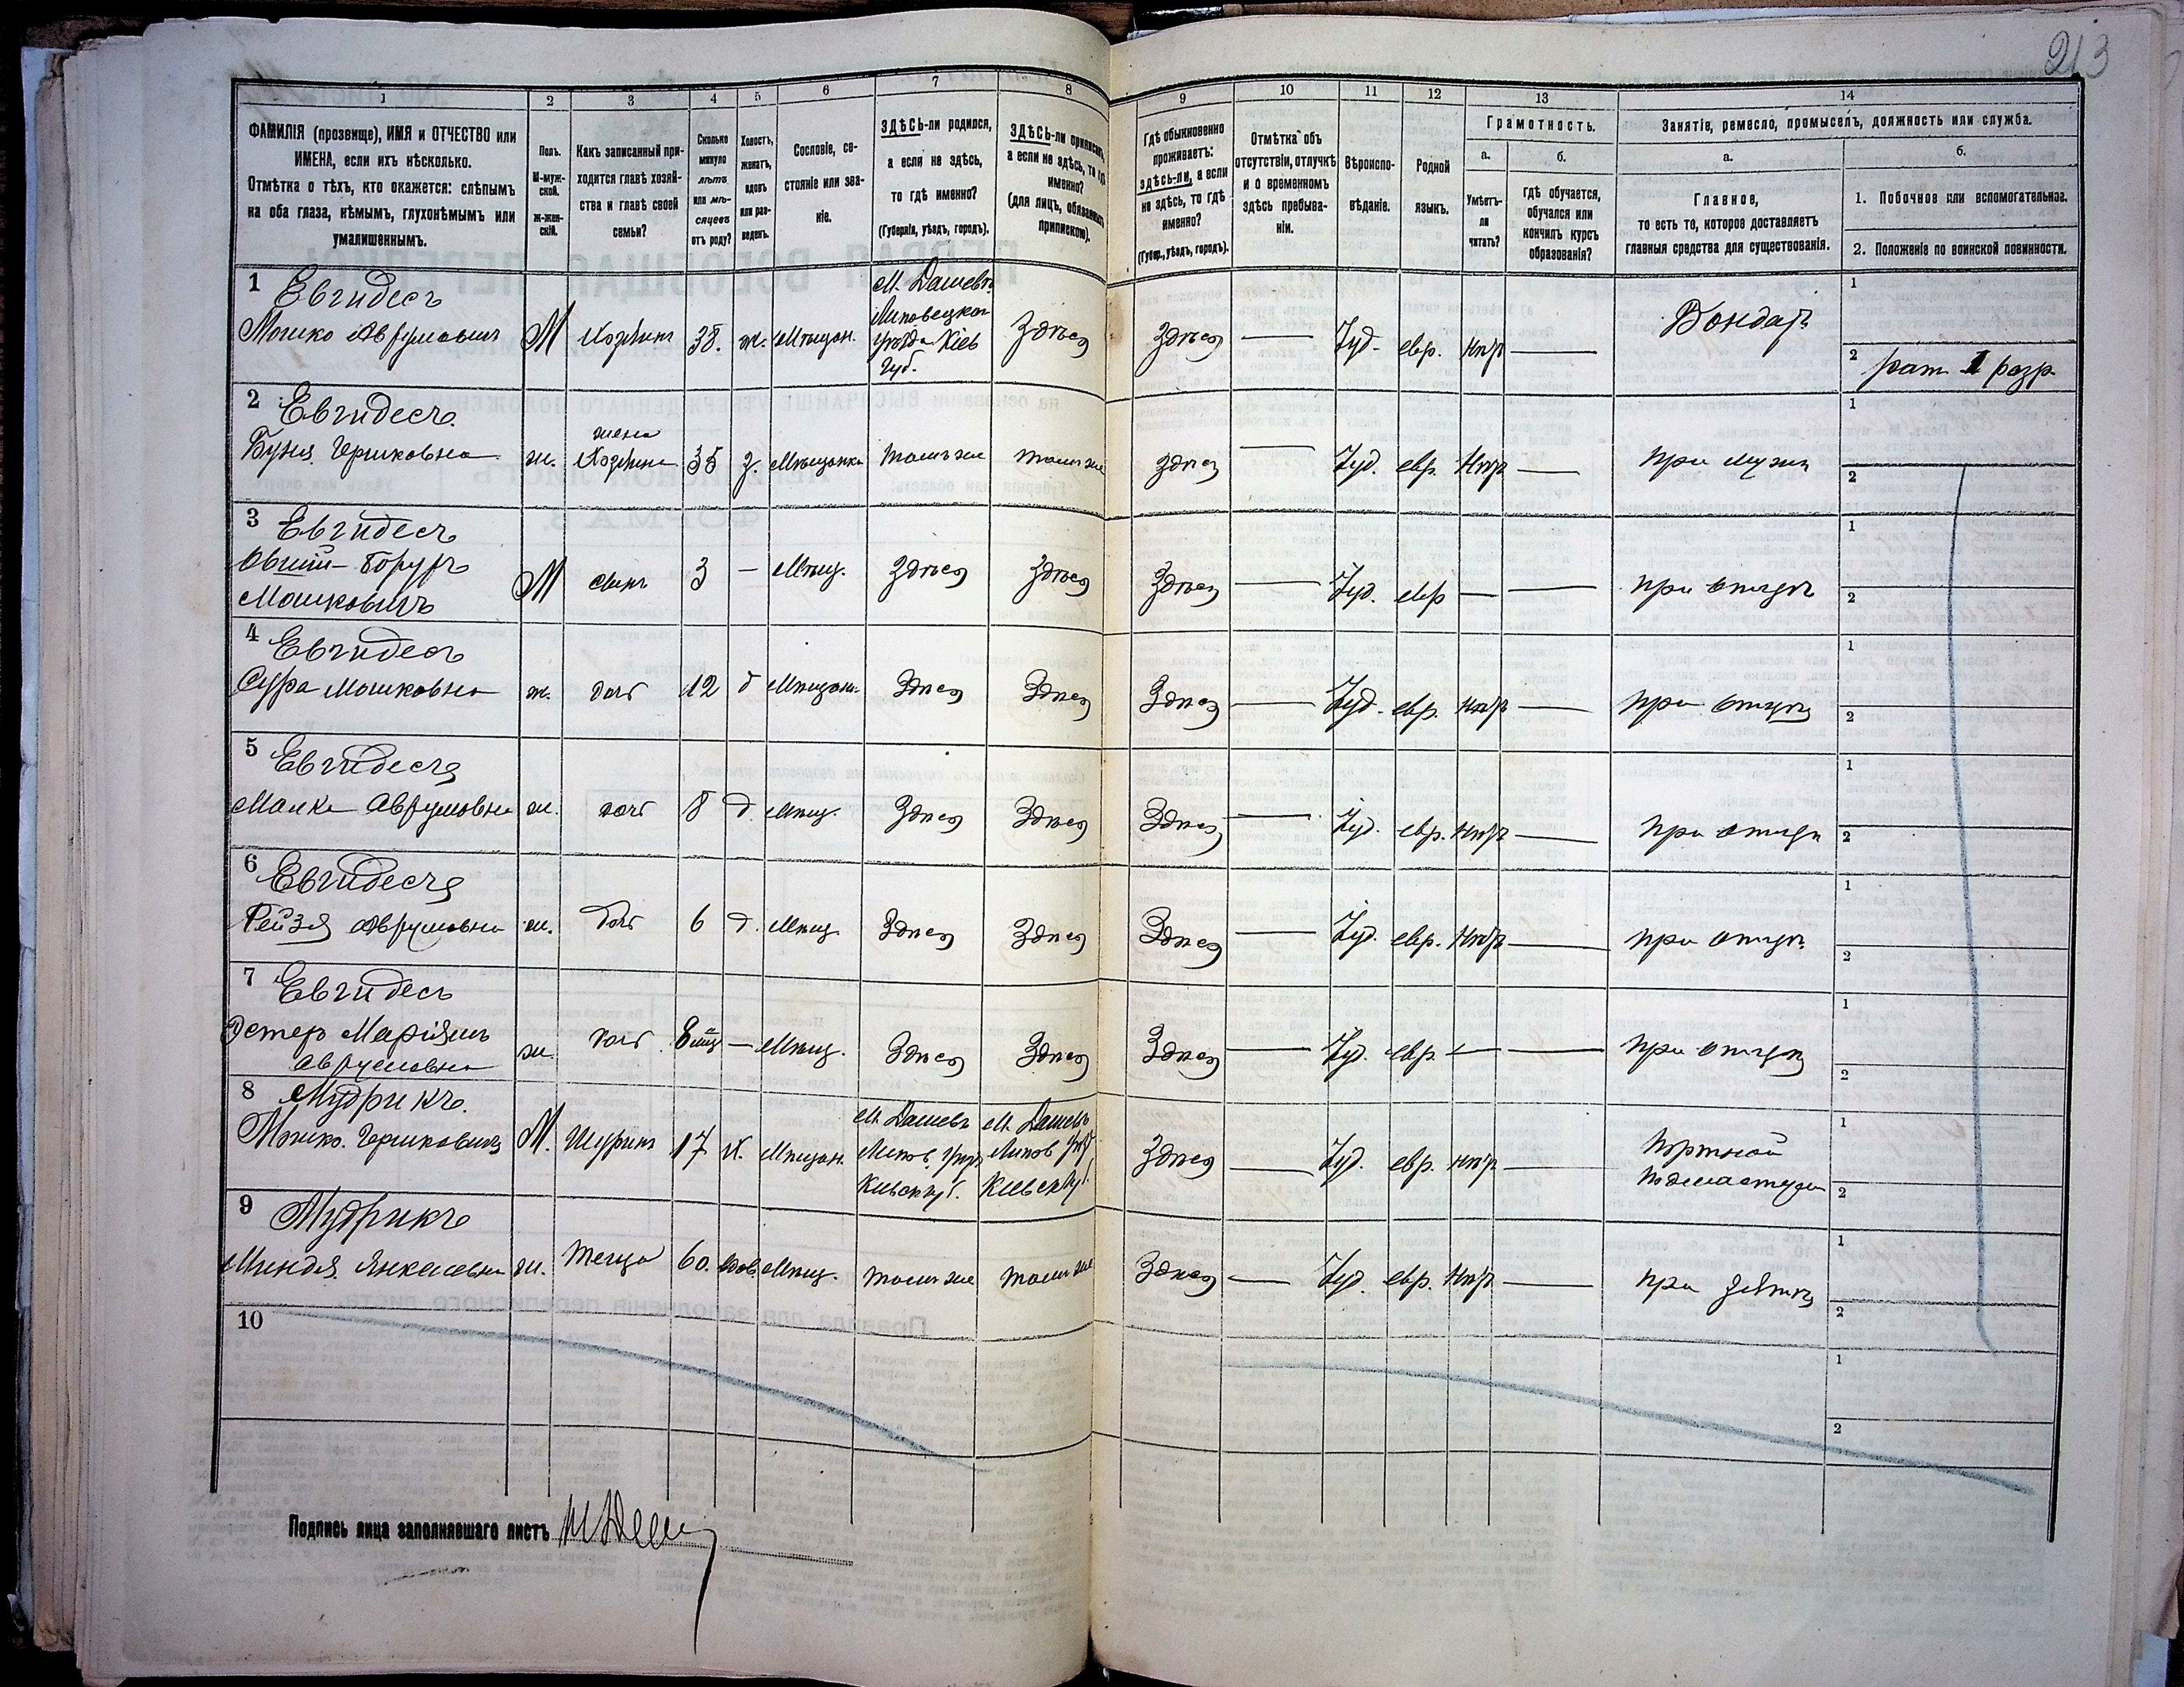 213
1 2 3 4 5 6 7 8 9 10 11 12 13 14
ФАМИЛІЯ (прозвище), ИМЯ и ОТЧЕСТВО или
ИМЕНА, если ихъ нѣсколько.
Отмѣтка о тѣхъ, кто окажется: слѣпымъ
на оба глаза, нѣмымъ, глухонѣмымъ или
умалишеннымъ.
Полъ.
М-муж-
ской.
Ж-жен-
скій.
Какъ записанный при-
ходится главѣ хозяй-
ства и главѣ своей
семьи?
Сколько
минуло
лѣтъ
или мѣ-
сяцевъ
отъ роду?
Холостъ,
женатъ,
вдовъ
или раз-
веденъ.
Сословіе, со-
стояніе или зва-
ніе.
ЗДѢСЬ-ли родился,
а если не здѣсь,
то гдѣ именно?
(Губернія, уѣздъ, городъ).
ЗДѢСЬ-ли приписанъ,
а если не здѣсь, то гдѣ
именно?
(для лицъ, обязанныхъ
припискою).
Гдѣ обыкновенно
проживаетъ:
здѣсь-ли, а если
не здѣсь, то гдѣ
именно?
(Губер., уѣздъ, городъ).
Отмѣтка объ
отсутствіи, отлучкѣ
и о временномъ
здѣсь пребыва-
ніи.
Вѣроиспо-
вѣданіе.
Родной
языкъ.
Грамотность.
а.
Умѣетъ-
ли
читать?
б.
Гдѣ обучается,
обучался или
кончилъ курсъ
образованія?
Занятіе, ремесло, промыселъ, должность или служба.
а.
Главное,
то есть то, которое доставляетъ
главныя средства для существованія.
б.
1. Побочное или вспомогательное.
2. Положеніе по воинской повинности.
1 Евгидесъ
Мошко Аврумовичъ М Хозяинъ 38. ж. Мѣщан. М. Дашевъ Липовецкаго уѣзда Кіев Губ. Здѣся Здѣся — Іуд. евр. нѣтъ — Бондаръ 1
2 рат 1 разр
2 Евгидесъ
Буня Гершковна ж. жена Хозяина 35 з. Мѣщанка тамъ же тамъ же Здѣся — Іуд. евр. Нѣтъ — при мужи 1
2
3 Евгидесъ
Борухъ
Мошковичъ М сынъ 3 — Мѣщ. Здѣся Здѣся Здѣся — Іуд. евр — — при отцѣ 1
2
4 Евгидесъ
Сура Мошковна ж. доч 12 д Мѣщан. Здѣся Здѣся Здѣся — Іуд. евр. нѣтъ — при отцѣ 1
2
5 Евгидесъ
Малка Аврумовна ж. доч 8 д. Мѣщ. Здѣся Здѣся Здѣся — Іуд. евр. нѣтъ — при отцѣ 1
2
6 Евгидесъ
Рейзя Аврумовна ж. доч 6 д. Мѣщ Здѣся Здѣся Здѣся — Іуд. евр. Нѣтъ — при отцѣ 1
2
7 Евгидесъ
Эстеръ Маріямъ
Аврумовна ж. доч 8 мц — Мѣщ. Здѣся Здѣся Здѣся — Іуд. евр — — при отцѣ 1
2
8 Мудрикъ.
Мошко Гершковичъ М. Шуринъ 17 х. Мѣщан. М. Дашевъ Липов. уѣзд Кіевск губ. М. Дашевъ Липов уѣзд Кіевск губ. Здѣся — Іуд. евр. нѣтъ — Портной подмастеръ 1
2
9 Мудрикъ
Миндля Янкелевна ж. Теща 60. вдов. Мѣщ. тамъ же тамъ же Здѣся — Іуд. евр. Нѣтъ — при зятѣ 1
2
10 1
2
Подпись лица заполнявшаго листъ